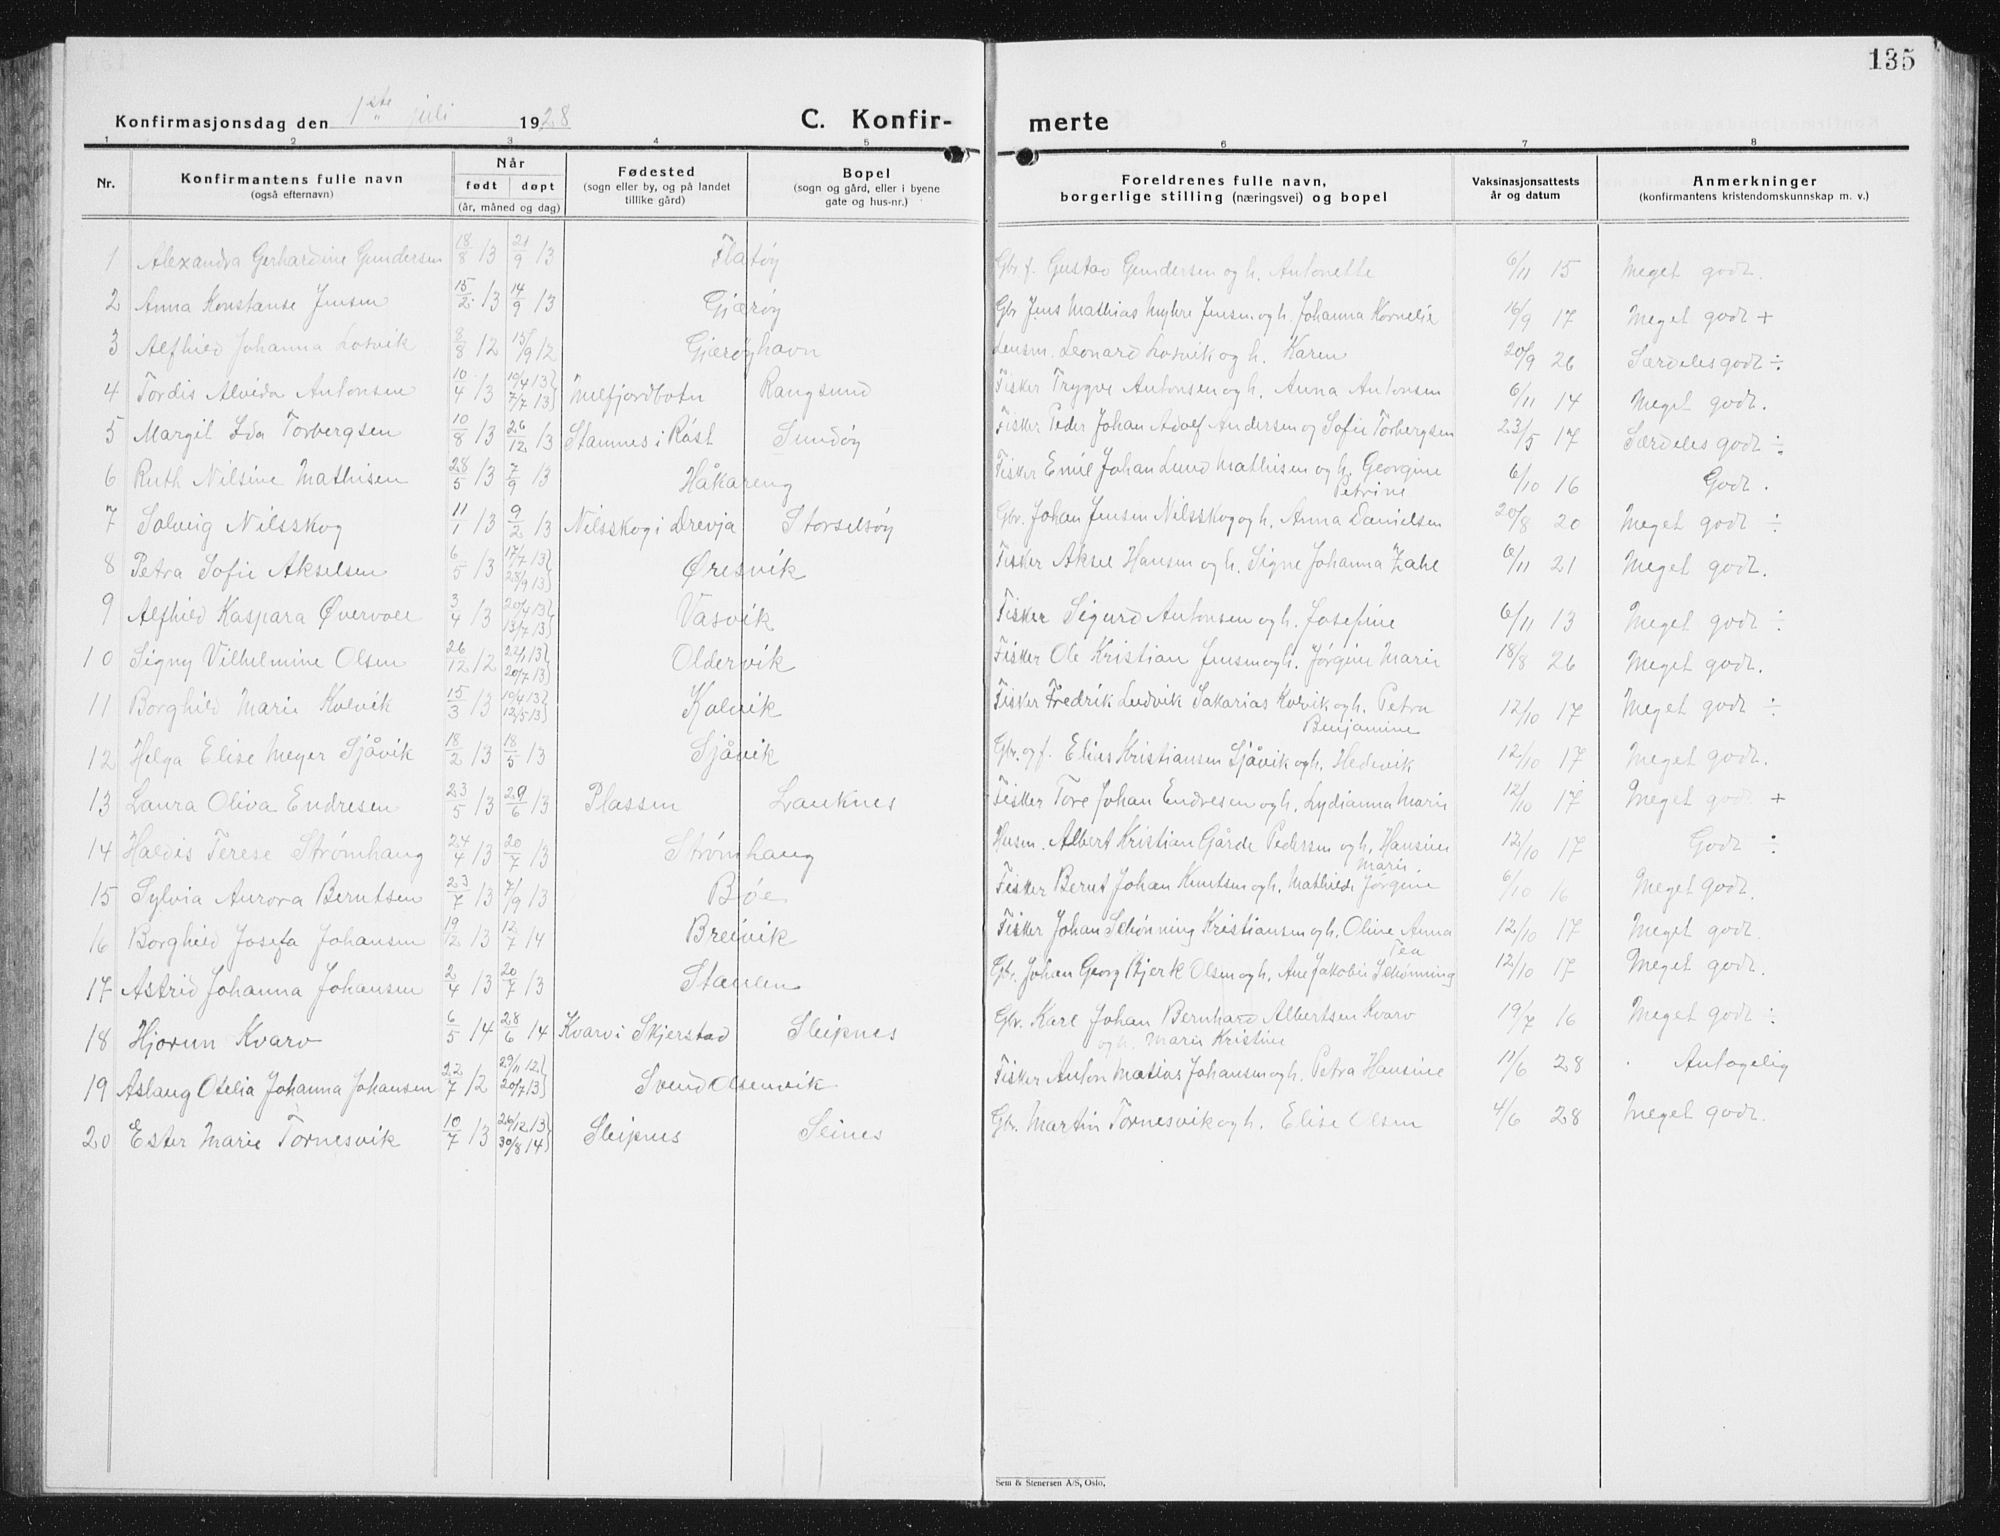 135
Konfirmasjonsdag den 1ste juli 1928 C. Konfir- merte
1 2 3 4 5 6 7 8
Nr. Konfirmantens fulle navn (også efternavn) Når født døpt (år, måned og dag) Fødested (sogn eller by, og på landet tillike gård) Bopel (sogn og gård, eller i byene gate og hus-nr.) Foreldrenes fulle navn, borgerlige stilling (næringsvei) og bopel Vaksinasjonsattests år og datum Anmerkninger (konfirmantens kristendomskunnskap m. v.)
1 Alexandra Gerhardine Gundersen 18/8 13 21/9 13 Flatøy Gbr. f. Gustav Gundersen og h. Antonette 6/11 15 Meget godt.
2 Anna Konstanse Jensen 15/2 13 14/9 13 Gjærøy Gbr. Jens Mathias Myhre Jensen og h. Johanna Kornelie 16/9 17 Meget godt +
3 Alfhild Johanna Losvik 8/8 12 15/9 12 Gjærøyhavn Lensm. Leonard Losvik og h. Karen 20/9 26 Særdeles godt ÷
4 Tordis Alvida Antonsen 10/4 13 10/4 13 7/7 13) Melfjordbotn Rangsund Fisker Trygve Antonsen og h. Anna Antonsen 6/11 14 Meget godt.
5 Margit Ida Torbergsen 10/8 13 26/12 13 Stamnes i Røst Sundøy Fisker Peder Johan Adolf Andersen og Sofie Torbergsen 23/5 17 Særdeles godt ÷
6 Ruth Nilsine Mathisen 28/5 13 7/9 13 Håkareng Fisker Emil Johan Lund Mathisen og h. Georgine Petrine 6/10 16 Godt.
7 Solveig Nilsskog 11/1 13 9/2 13 Nilsskog i Drevja Storselsøy Gbr. Johan Jensen Nilsskog og h. Anna Danielsen 20/8 20 Meget godt ÷
8 Petra Sofie Akselsen 6/5 13 17/7 13 28/9 13) Øresvik Fisker Aksel Hansen og h. Signe Johanna Zahl 6/11 21 Meget godt.
9 Alfhild Kaspara Øvervoll 3/4 13 20/4 13 13/7 13) Vasvik Fisker Sigurd Antonsen og h. Josefine 6/11 13 Meget godt ÷
10 Signy Vilhelmine Olsen 26/12 12 20/7 13) Oldervik Fisker Ole Kristian Jensen og h. Jørgine Marie 18/8 26 Meget godt.
11 Borghild Marie Kolvik 15/3 13 10/4 13 12/5 13) Kolvik Fisker Fredrik Ludvik Sakarias Kolvik og h. Petra Benjamine 12/10 17 Meget godt ÷
12 Helga Elise Meyer Sjåvik 18/2 13 18/5 13 Sjåvik Gbr. og f. Elias Kristiansen Sjåvik og h. Hedevik 12/10 17 Meget godt.
13 Laura Oliva Endresen 23/5 13 29/6 13 Plassen Lauknes Fisker Tore Johan Endresen og h. Lydianna Marie 12/10 17 Meget godt +
14 Haldis Terese Strømhaug 24/4 13 20/7 13 Strømhaug Husm. Albert Kristian Gårde Pedersen og h. Hansine Marie 12/10 17 Godt ÷
15 Sylvia Aurora Berntsen 23/7 13 7/9 13 Bøe Fisker Bernt Johan Knutsen og h. Mathilde Jørgine 6/10 16 Meget godt.
16 Borghild Josefa Johansen 19/12 13 12/7 14 Breivik Fisker Johan Schønning Kristiansen og h. Oline Anna Tea 12/10 17 Meget godt.
17 Astrid Johanna Johansen 2/4 13 20/7 13 Staulen Gbr. Johan Georg Bjerk Olsen og h. Ane Jakobin Schønning 12/10 17 Meget godt.
18 Hjørun Kvarv 6/5 14 28/6 14 Kvarv i Skjerstad Sleipnes Gbr. Karl Johan Bernhard Albertsen Kvarv og h. Marie Kristine 19/7 16 Meget godt ÷
19 Aslaug Otelia Johanna Johansen 22/7 12 29/11 12 20/7 13) Svend Olsenvik Fisker Anton Matias Johansen og h. Petra Hansine 11/6 28 Antagelig
20 Ester Marie Tornesvik 10/7 13 26/12 13 30/8 14) Sleipnes Seines Gbr. Martin Tornesvik og h. Elise Olsen 4/6 28 Meget godt.
Sem & Stenersen A/S, Oslo.